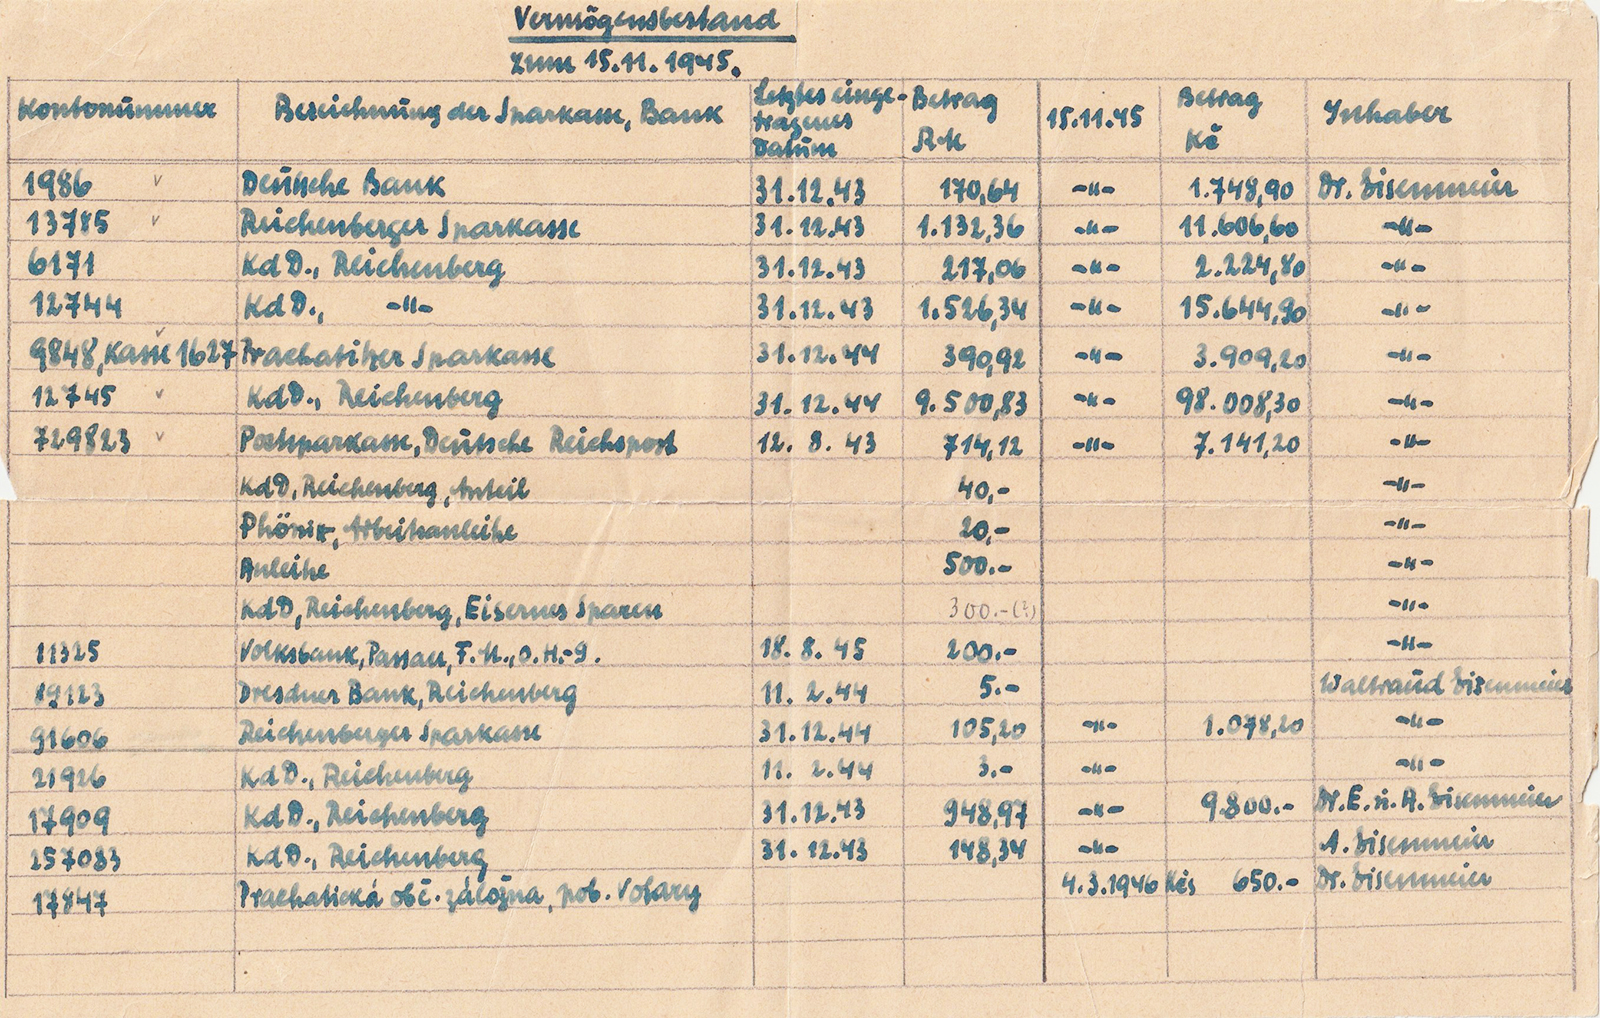 Vermögensbestand
zum 15.11.1945.
Kontonummer Bezeichnung der Sparkasse, Bank Letztes eingetragenes Datum Betrag RM 15.11.45 Betrag Kč Inhaber
1986 Deutsche Bank 31.12.43 170,64 -"- 1.748,90 Dr. Eisenmeier
13785 Reichenberger Sparkasse 31.12.43 1.132,36 -"- 11.606,60 -"-
6171 KdD., Reichenberg 31.12.43 217,06 -"- 2.224,80 -"-
12744 KdD., -"- 31.12.43 1.526,34 -"- 15.644,90 -"-
9848, Kasse 1627 Prachatitzer Sparkasse 31.12.44 390,92 -"- 3.909,20 -"-
12745 KdD., Reichenberg 31.12.44 9.500,83 -"- 98.008,30 -"-
729823 Postsparkasse, Deutsche Reichspost 12. 8. 43 714,12 -"- 7.141,20 -"-
KdD, Reichenberg, Anteil 40,- -"-
Phönix, Arbeitsanleihe 20,- -"-
Anleihe 500.- -"-
KdD, Reichenberg, Eisernes Sparen 300.-(?) -"-
11325 Volksbank, Passau, F.U., o.H.-G. 18. 8. 45 200.- -"-
19123 Dresdner Bank, Reichenberg 11. 2. 44 5.- Waltraud Eisenmeier
91606 Reichenberger Sparkasse 31.12.44 105,20 -"- 1.078,20 -"-
21926 KdD., Reichenberg 11. 2. 44 3.- -"- -"-
17909 KdD., Reichenberg 31.12.43 948,97 -"- 9.800.- Dr. E. u. A. Eisenmeier
257083 KdD., Reichenberg 31.12.43 148,34 -"- A. Eisenmeier
17847 Prachatická obč. záložna, pob. Volary 4.3.1946 Kčs 650.- Dr. Eisenmeier